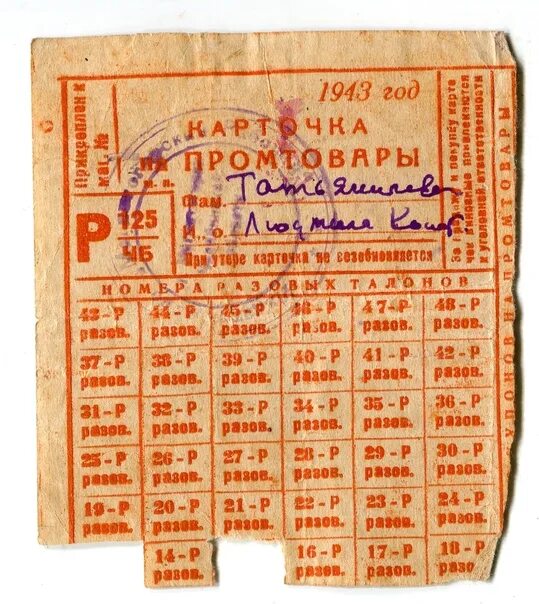 1943 год
КАРТОЧКА
на ПРОМТОВАРЫ
Прикреплен к
маг. №
Р 125
ЧБ
Фам.
И. о. Людмила
При утере карточка не возобновляется
За продажу и покупку карта
и уголовной ответственности
НОМЕРА РАЗОВЫХ ТАЛОНОВ
43-Р 44-Р 45-Р 46-Р 47-Р 48-Р
разов. разов. разов. разов. разов. разов.
37-Р 38-Р 39-Р 40-Р 41-Р 42-Р
разов. разов. разов. разов. разов. разов.
31-Р 32-Р 33-Р 34-Р 35-Р 36-Р
разов. разов. разов. разов. разов. разов.
25-Р 26-Р 27-Р 28-Р 29-Р 30-Р
разов. разов. разов. разов. разов. разов.
19-Р 20-Р 21-Р 22-Р 23-Р 24-Р
разов. разов. разов. разов. разов. разов.
14-Р 16-Р 17-Р 18-Р
разов. разов. разов. разов.
УПОНОВ НА ПРОМТОВАРЫ